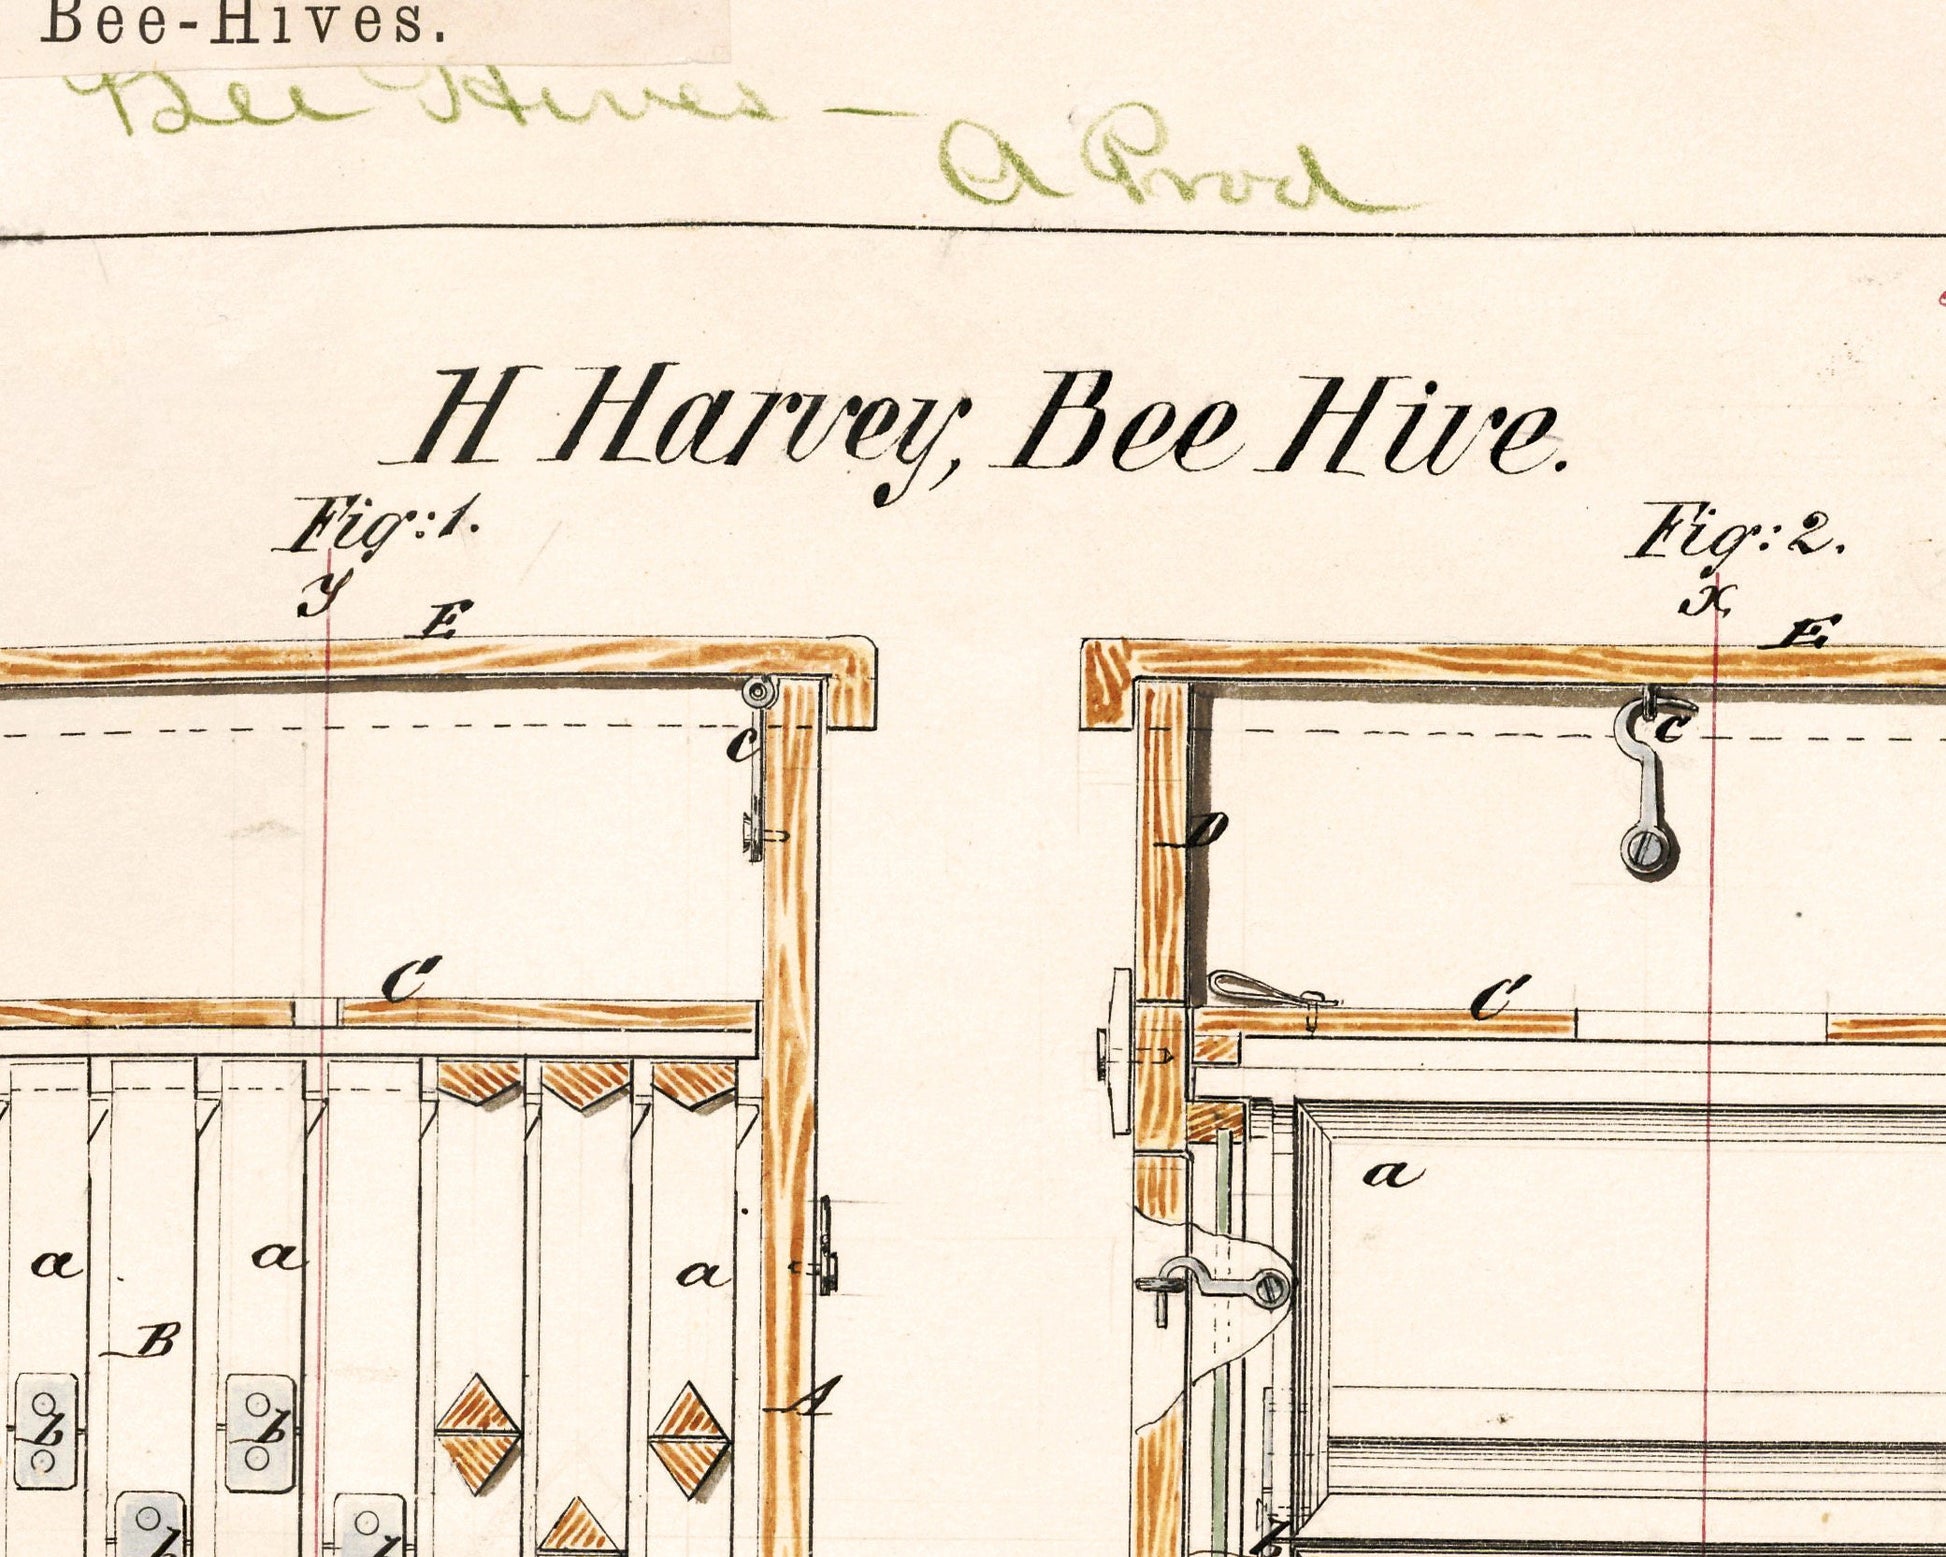 Bee-Hives.
Bee Hives —
A Prod
H Harvey, Bee Hive.
Fig: 1.
Fig: 2.
y
x
E
E
c
c
D
C
C
a
a
a
a
B
A
b
b
b
b
b